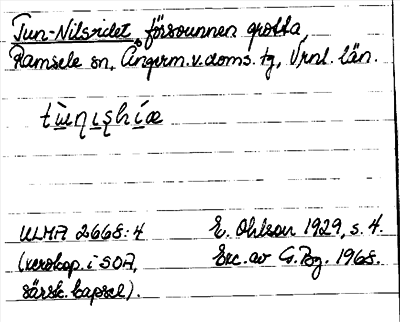 Tun-Nilsridet, försvunnen grotta,
Ramsele sn, Ångerm.v.doms. tg, Vrnl. län.
ULMA 2668:4 E. Ohlson 1929, s. 4.
(xerokop. i SOA, Exc. av G. Bg. 1968.
särsk. kapsel).